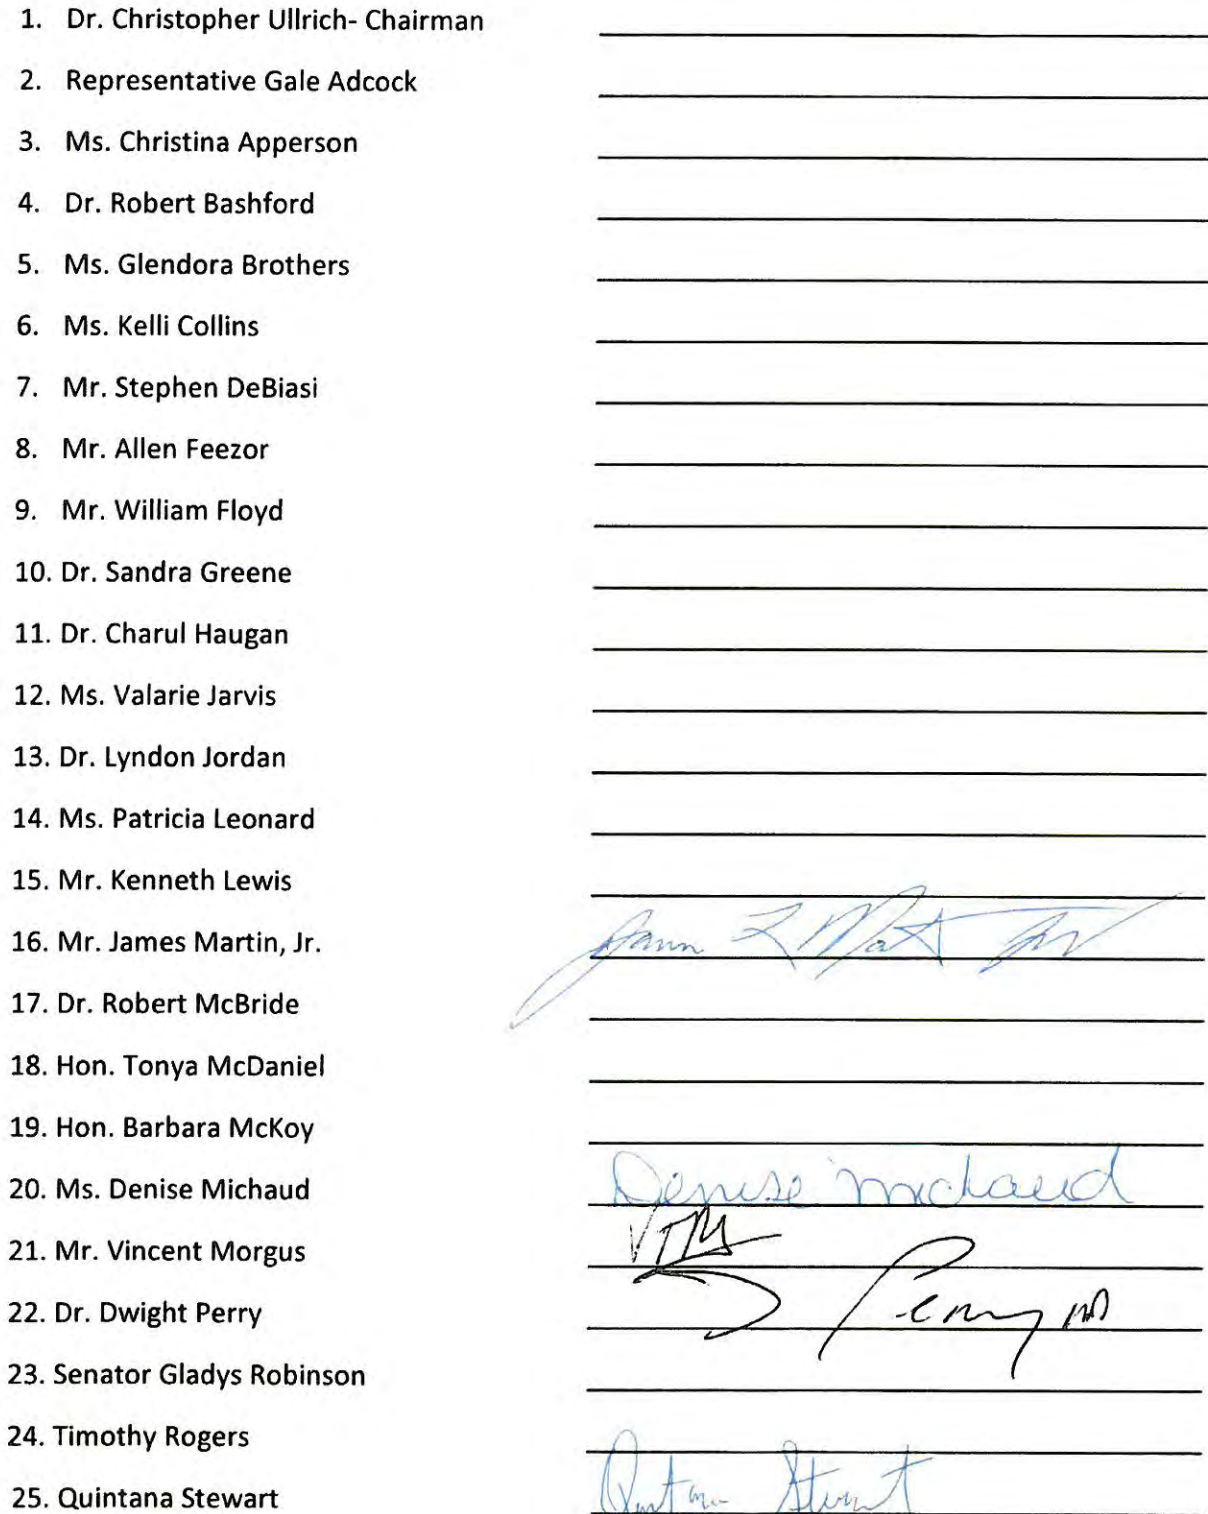 1. Dr. Christopher Ullrich- Chairman
2. Representative Gale Adcock
3. Ms. Christina Apperson
4. Dr. Robert Bashford
5. Ms. Glendora Brothers
6. Ms. Kelli Collins
7. Mr. Stephen DeBiasi
8. Mr. Allen Feezor
9. Mr. William Floyd
10. Dr. Sandra Greene
11. Dr. Charul Haugan
12. Ms. Valarie Jarvis
13. Dr. Lyndon Jordan
14. Ms. Patricia Leonard
15. Mr. Kenneth Lewis
16. Mr. James Martin, Jr.
17. Dr. Robert McBride
18. Hon. Tonya McDaniel
19. Hon. Barbara McKoy
20. Ms. Denise Michaud Denise Michaud
21. Mr. Vincent Morgus
22. Dr. Dwight Perry D Perry MD
23. Senator Gladys Robinson
24. Timothy Rogers
25. Quintana Stewart Quintana Stewart